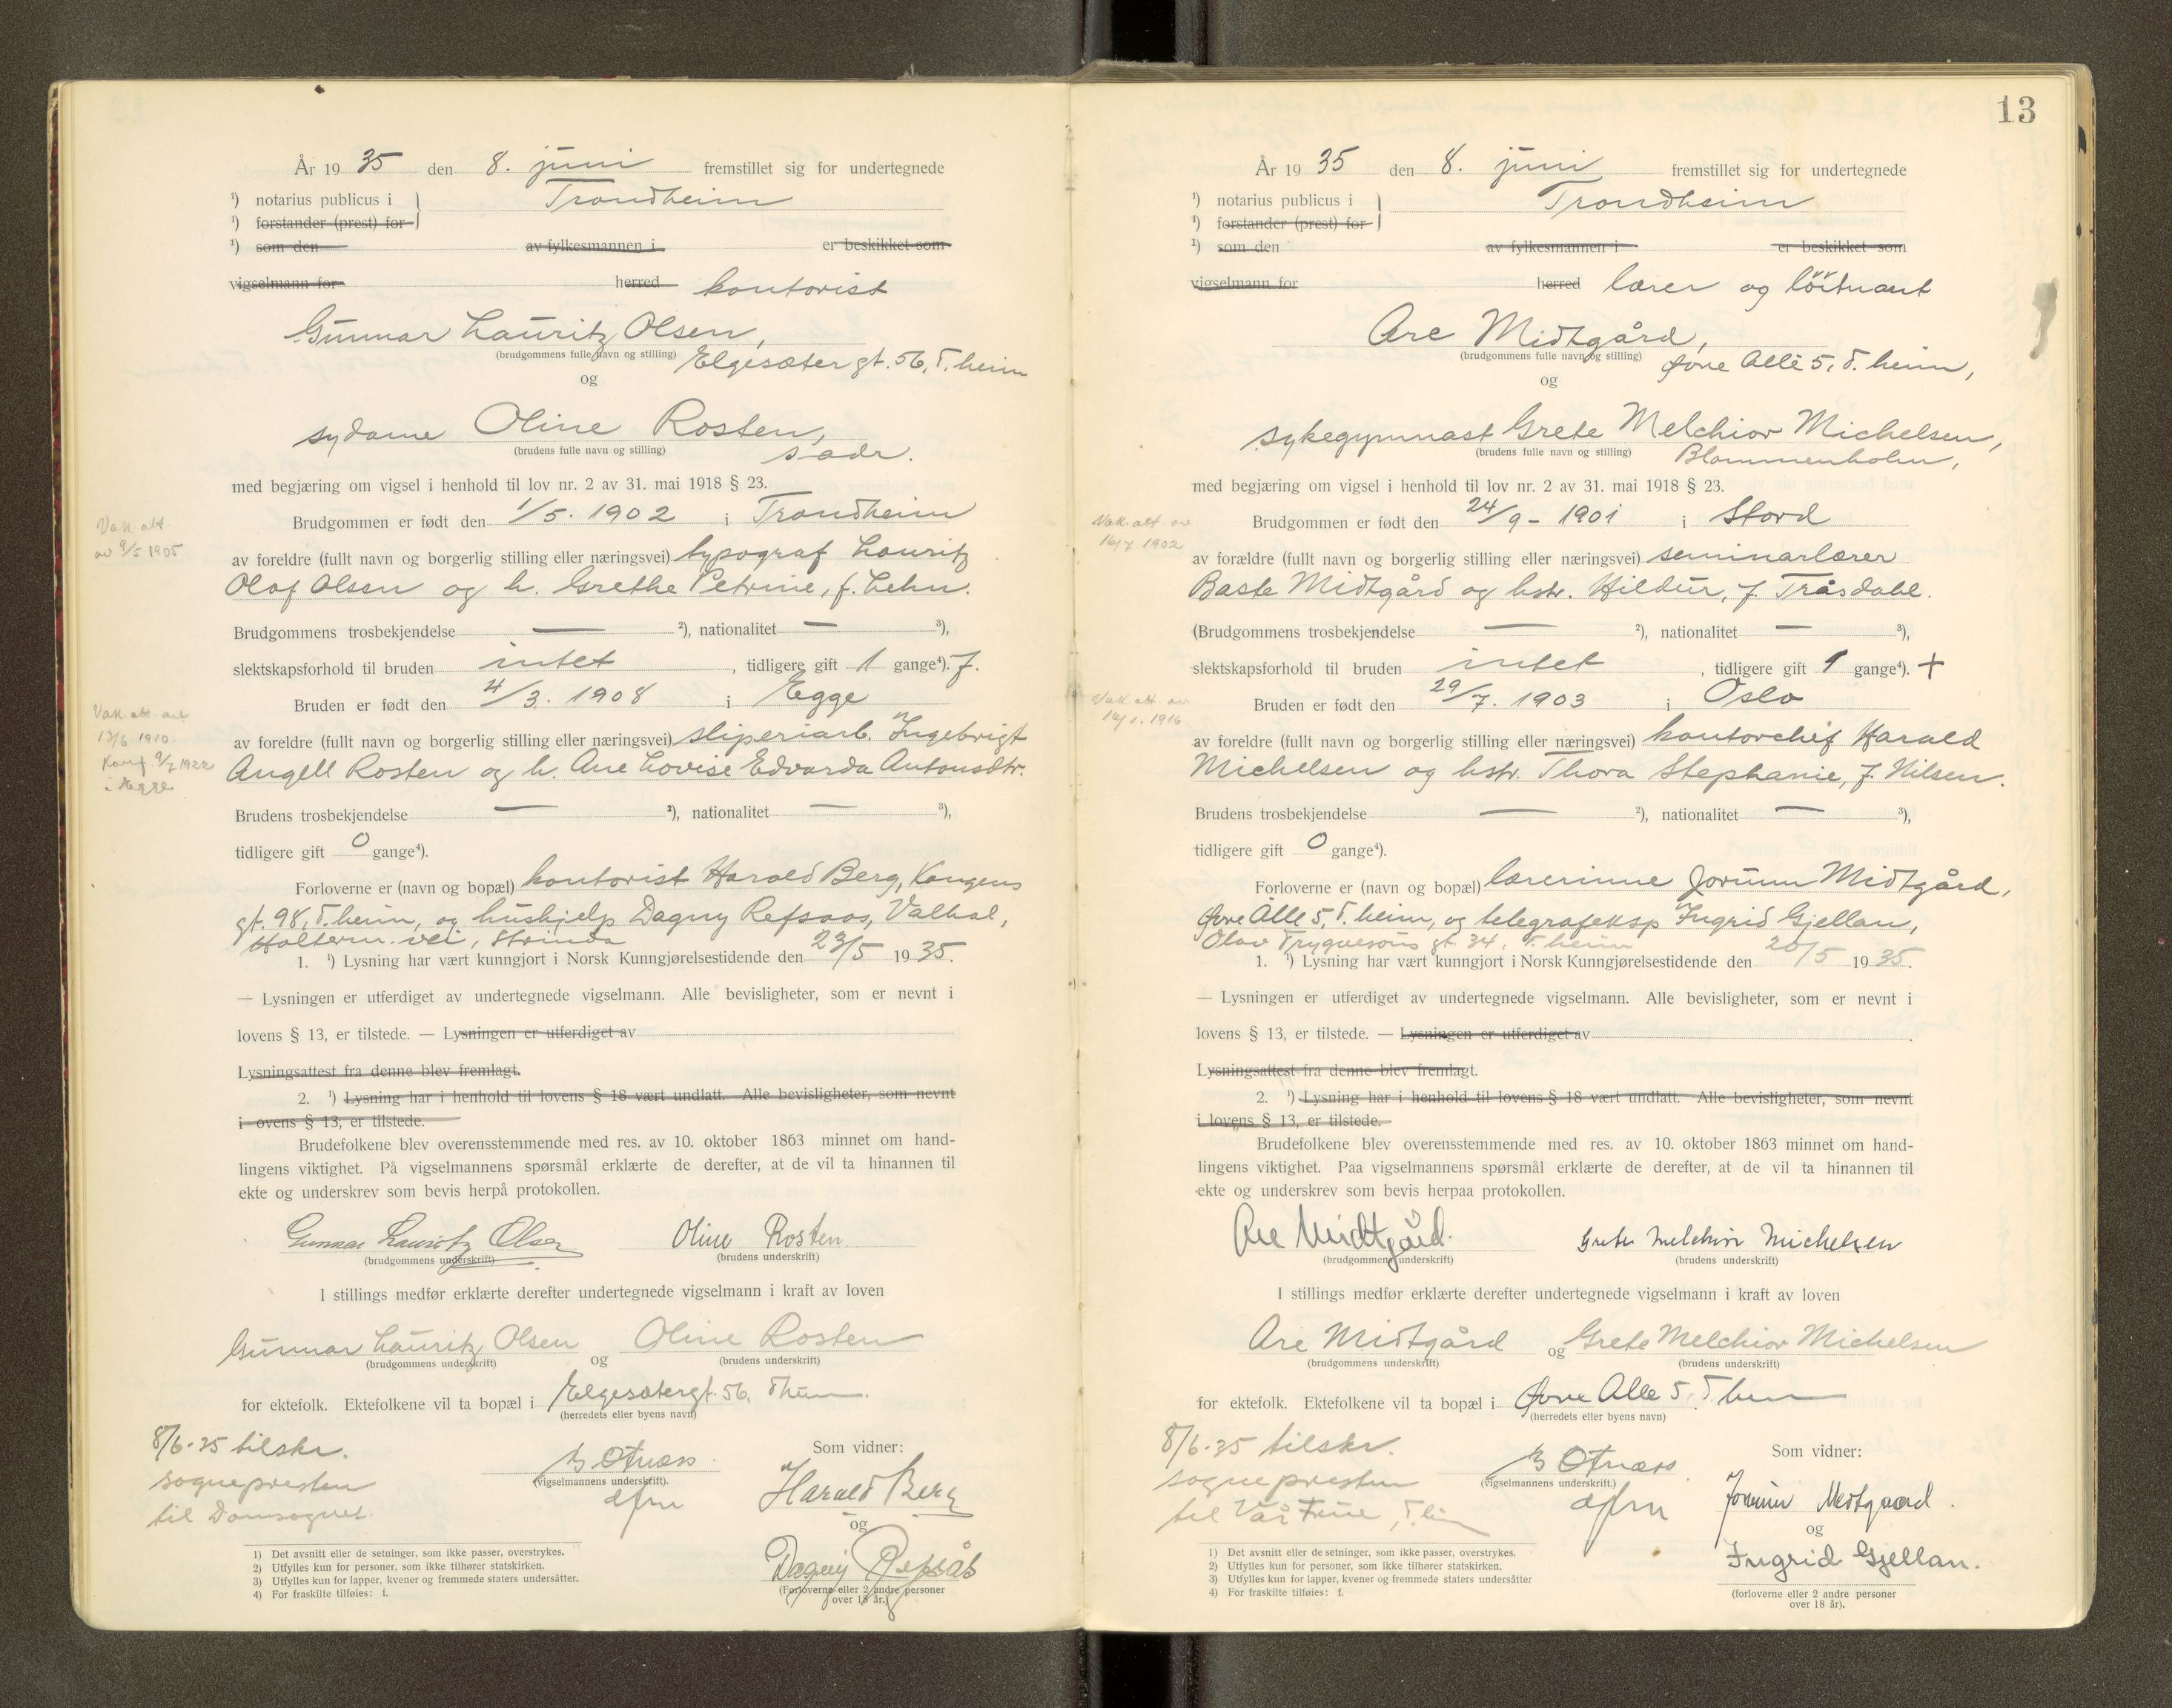 År 19 35 den 8. juni fremstillet sig for undertegnede
¹) notarius publicus i Trondheim
¹) forstander (prest) for
¹) som den av fylkesmannen i er beskikket som
vigselmann for herred kontorist
Gunnar Lauritz Olsen,
(brudgommens fulle navn og stilling) Elgesæter gt. 56, T.heim
og
sydame Oline Rosten,
(brudens fulle navn og stilling) s. adr.
med begjæring om vigsel i henhold til lov nr. 2 av 31. mai 1918 § 23.
Vak. att.
av 9/5 1905
Brudgommen er født den 1/5. 1902 i Trondheim
av foreldre (fullt navn og borgerlig stilling eller næringsvei) typograf Lauritz
Olaf Olsen og h. Grethe Petrine, f. Lehn.
Brudgommens trosbekjendelse — ²), nationalitet — ³),
slektskapsforhold til bruden intet, tidligere gift 1 gange⁴). f.
Bruden er født den 4/3. 1908 i Egge
Vak att av
13/6 1910
Konf. 9/7 1922
i Egge
av foreldre (fullt navn og borgerlig stilling eller næringsvei) sliperiarb. Ingebrigt
Angell Rosten og h. Ane Lovise Edvarda Antonsdtr.
Brudens trosbekjendelse — ²), nationalitet — ³),
tidligere gift 0 gange⁴).
Forloverne er (navn og bopæl) kontorist Harald Berg, Kongens
gt. 98, T.heim, og hushjelp Dagny Refsaas, Valhal,
Halterm. vei, Strinda
1. ¹) Lysning har vært kunngjort i Norsk Kunngjørelsestidende den 23/5 19 35.
— Lysningen er utferdiget av undertegnede vigselmann. Alle bevisligheter, som er nevnt i
lovens § 13, er tilstede. — Lysningen er utferdiget av
Lysningsattest fra denne blev fremlagt.
2. ¹) Lysning har i henhold til lovens § 18 vært undlatt. Alle bevisligheter, som nevnt
i ovens § 13, er tilstede.
Brudefolkene blev overensstemmende med res. av 10. oktober 1863 minnet om hand-
lingens viktighet. På vigselmannens spørsmål erklærte de derefter, at de vil ta hinannen til
ekte og underskrev som bevis herpå protokollen.
Gunnar Lauritz Olsen Oline Rosten
(brudgommens underskrift) (brudens underskrift)
I stillings medfør erklærte derefter undertegnede vigselmann i kraft av loven
Gunnar Lauritz Olsen og Oline Rosten
(brudgommens underskrift) (brudens underskrift)
for ektefolk. Ektefolkene vil ta bopæl i Elgesætergt. 56, Theim.
(herredets eller byens navn)
8/6-35 tilskr.
sognepresten
til Domsognet.
B Otnæss
(vigselmannens underskrift).
dfm
Som vidner:
Harald Berg
og
Dagny Refsås
(Forloverne eller 2 andre personer
over 18 år.)
1) Det avsnitt eller de setninger, som ikke passer, overstrykes.
2) Utfylles kun for personer, som ikke tilhører statskirken.
3) Utfylles kun for lapper, kvener og fremmede staters undersåtter.
4) For fraskilte tilføies: f.
13
År 19 35 den 8. juni fremstillet sig for undertegnede
¹) notarius publicus i Trondheim
¹) forstander (prest) for
¹) som den av fylkesmannen i er beskikket som
vigselmann for herred lærer og löitnant
Are Midtgård,
(brudgommens fulle navn og stilling) Øvre Allé 5, T.heim,
og
sykegymnast Grete Melchior Michelsen,
(brudens fulle navn og stilling) Blommenholm,
med begjæring om vigsel i henhold til lov nr. 2 av 31. mai 1918 § 23.
Vak. att. av
16/7 1902
Brudgommen er født den 24/9 - 1901 i Stord
av forældre (fullt navn og borgerlig stilling eller næringsvei) seminarlærer
Baste Midtgård og hstr. Hildur, f. Tråsdahl.
(Brudgommens trosbekjendelse — ²), nationalitet — ³),
slektskapsforhold til bruden intet, tidligere gift 1 gange⁴). +
Vak att av
16/1. 1916
Bruden er født den 29/7. 1903 i Oslo
av foreldre (fullt navn og borgerlig stilling eller næringsvei) kontorchef Harald
Michelsen og hstr. Thora Stephanie, f. Nilsen.
Brudens trosbekjendelse — ²), nationalitet — ³),
tidligere gift 0 gange⁴).
Forloverne er (navn og bopæl) lærerinne Jorunn Midtgård,
Øvre Allé 5, T.heim, og telegrafeksp Ingrid Gjellan,
Olav Trygvesöns gt. 34. T.heim
1. ¹) Lysning har vært kunngjort i Norsk Kunngjørelsestidende den 20/5 19 35.
— Lysningen er utferdiget av undertegnede vigselmann. Alle bevisligheter, som er nevnt i
lovens § 13, er tilstede. — Lysningen er utferdiget av
Lysningsattest fra denne blev fremlagt.
2. ¹) Lysning har i henhold til lovens § 18 vært undlatt. Alle bevisligheter, som nevnt
i lovens § 13, er tilstede.
Brudefolkene blev overensstemmende med res. av 10. oktober 1863 minnet om hand-
lingens viktighet. Paa vigselmannens spørsmål erklærte de derefter, at de vil ta hinannen til
ekte og underskrev som bevis herpaa protokollen.
Are Midtgård. Grete Melchior Michelsen
(brudgommens underskrift) (brudens underskrift)
I stillings medfør erklærte derefter undertegnede vigselmann i kraft av loven
Are Midtgård og Grete Melchior Michelsen
(brudgommens underskrift) (brudens underskrift)
for ektefolk. Ektefolkene vil ta bopæl i Øvre Alle 5, T.heim
(herredets eller byens navn)
8/6-35 tilskr.
sognepresten
til Vår Frue, T.heim
B Otnæss
(vigselmannens underskrift.)
dfm
Som vidner:
Jorunn Midtgaard.
og
Ingrid Gjellan.
(forloverne eller 2 andre personer
over 18 år).
1) Det avsnitt eller de setninger, som ikke passer, overstrykes.
2) Utfylles kun for personer, som ikke tilhører statskirken.
3) Utfylles kun for lapper, kvener og fremmede staters undersåtter
4) For fraskilte tilføies: f.